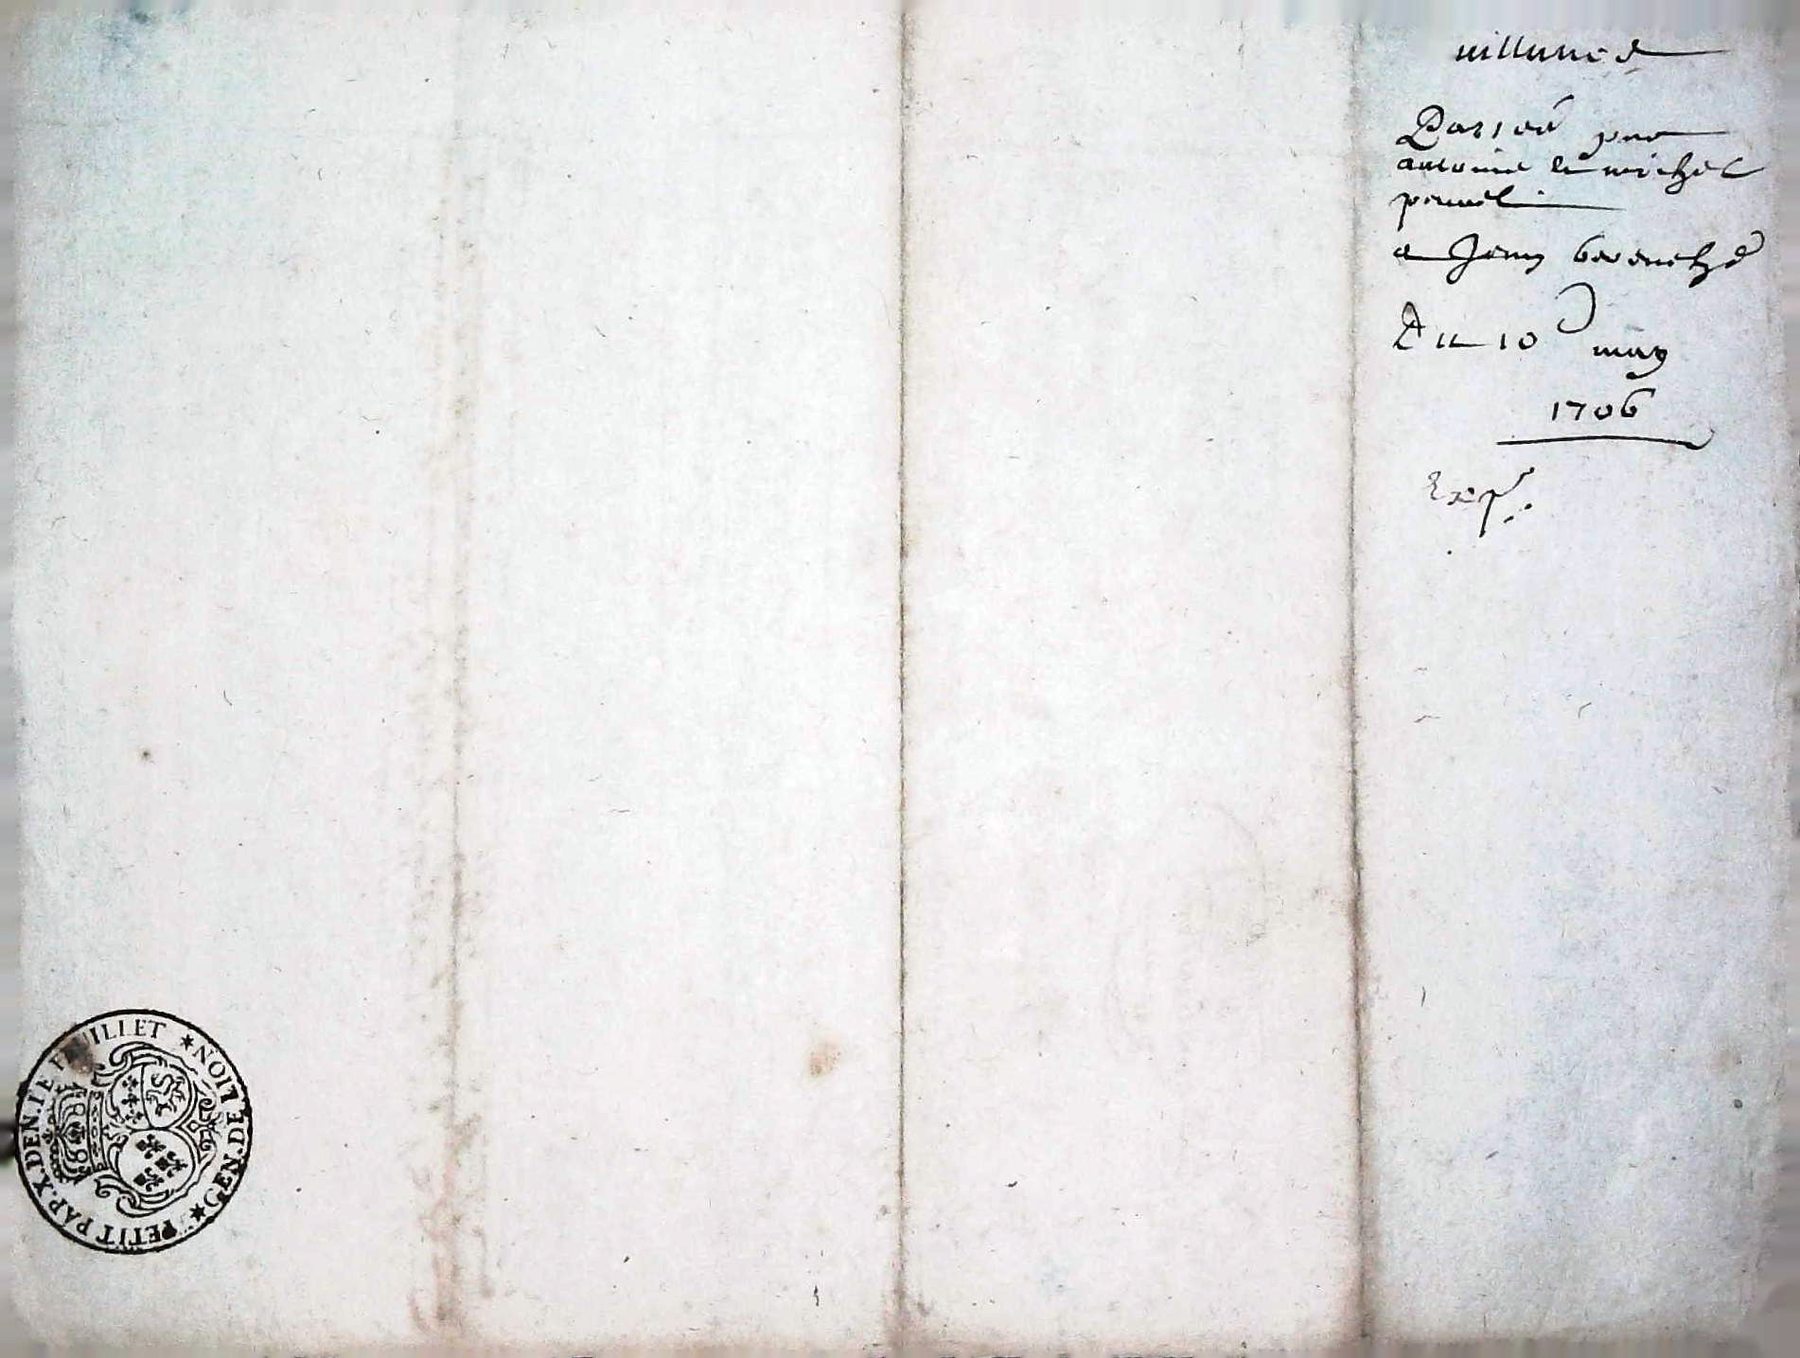 Passée par
antoine et michel
a Jean
Du 10 may
1706
Exp.
PETIT PAP. X. DEN. LE FEUILLET * GEN. DE LION *